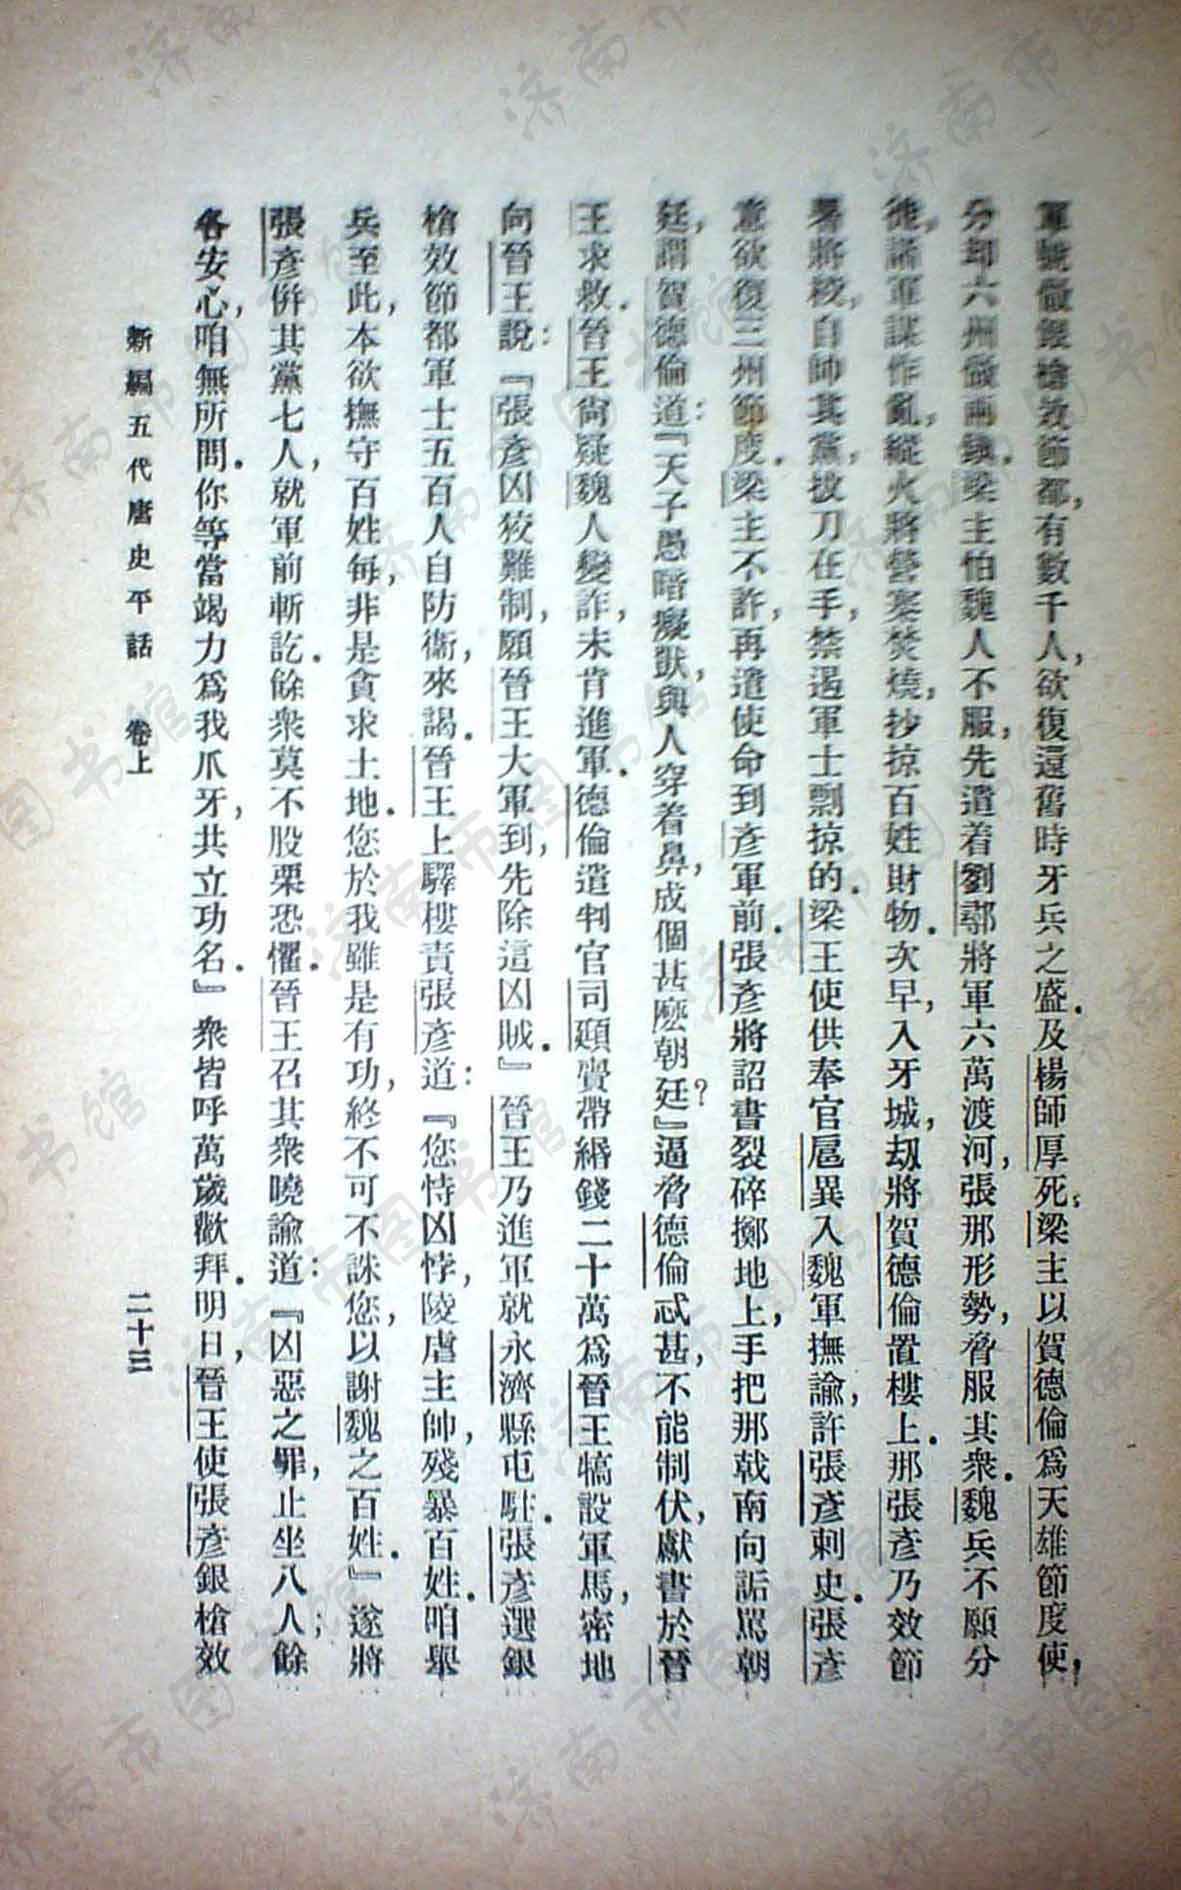 軍號做銀槍效節都，有數千人，欲復還舊時牙兵之盛．及楊師厚死，梁主以賀德倫爲天雄節度使，
分却六州做兩鎮．梁主怕魏人不服，先遣着劉鄩將軍六萬渡河，張那形勢，脅服其衆．魏兵不願分
徙，諸軍謀作亂，縱火將營寨焚燒，抄掠百姓財物．次早，入牙城，劫將賀德倫置樓上．那張彥乃效節
署將校，自帥其黨，拔刀在手，禁遏軍士剽掠的．梁王使供奉官扈異入魏軍撫諭，許張彥刺史．張彥
意欲復三州節度．梁主不許，再遣使命到彥軍前．張彥將詔書裂碎擲地上，手把那戟南向詬罵朝
廷，謂賀德倫道：『天子愚暗癡獃，與人穿着鼻，成個甚麼朝廷？』逼脅德倫忒甚，不能制伏，獻書於晉
王求救．晉王尙疑魏人變詐，未肯進軍．德倫遣判官司頲賫帶緡錢二十萬爲晉王犒設軍馬，密地
向晉王說：『張彥凶狡難制，願晉王大軍到，先除這凶賊．』晉王乃進軍就永濟縣屯駐．張彥選銀
槍效節都軍士五百人自防衞，來謁．晉王上驛樓責張彥道：『您恃凶悖，陵虐主帥，殘暴百姓．咱舉
兵至此，本欲撫守百姓每，非是貪求土地．您於我雖是有功，終不可不誅您，以謝魏之百姓．』遂將
張彥併其黨七人，就軍前斬訖．餘衆莫不股栗恐懼．晉王召其衆曉諭道：『凶惡之罪，止坐八人；餘
各安心，咱無所問．你等當竭力爲我爪牙，共立功名．』衆皆呼萬歲歡拜．明日，晉王使張彥銀槍效
新編五代唐史平話　卷上　二十三
济南市图书馆